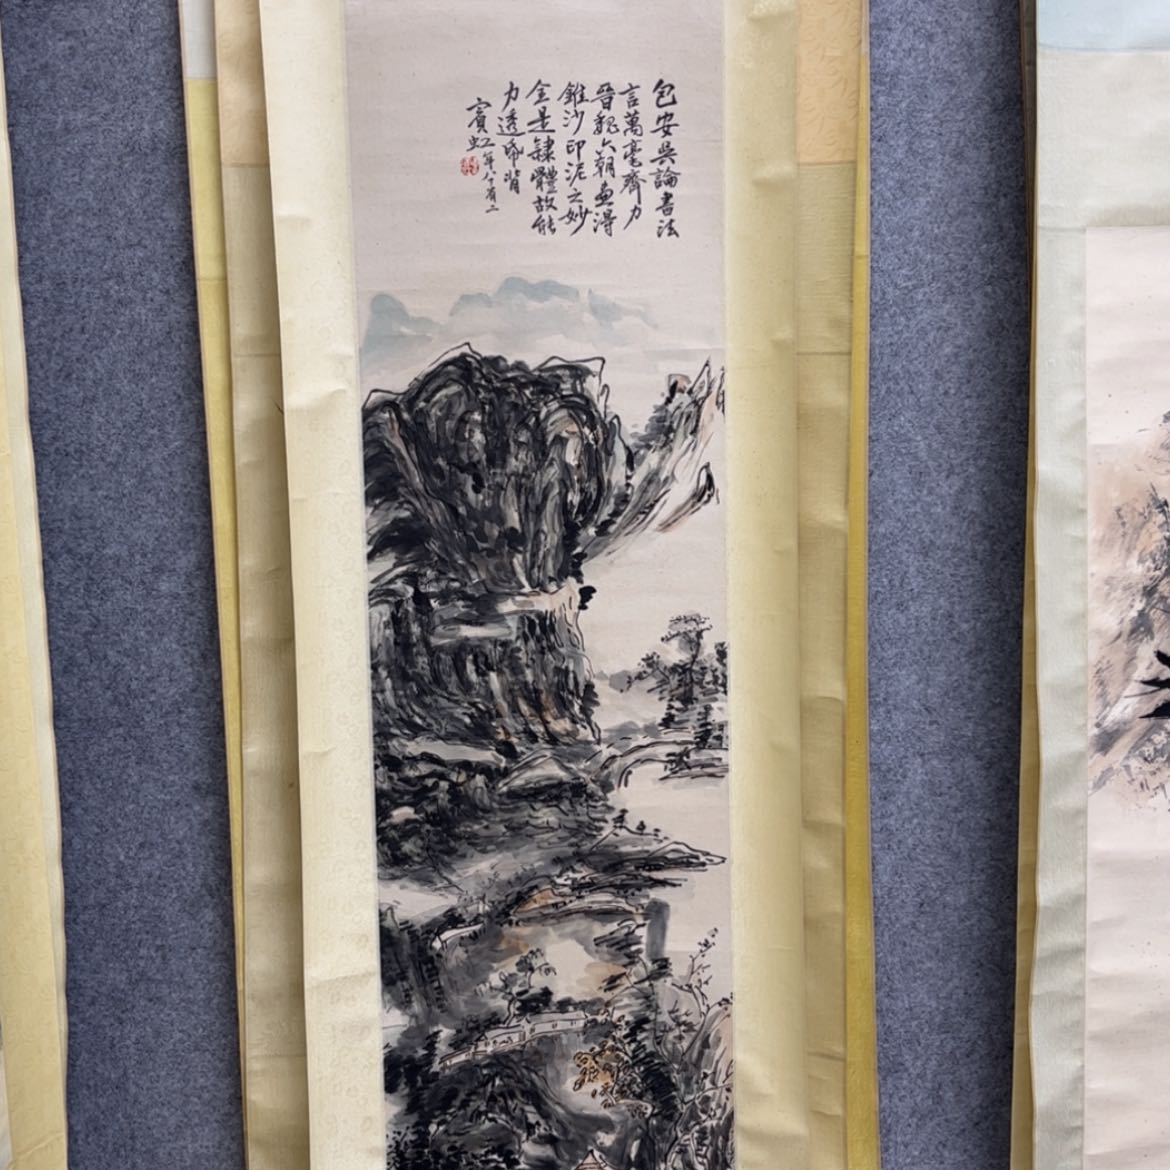 包安吳論書法
言萬毫齊力
晉魏六朝畫淂
錐沙印泥之妙
全是隸體故能
力透紙背
賓虹年八十有二